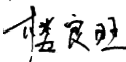 楼良旺